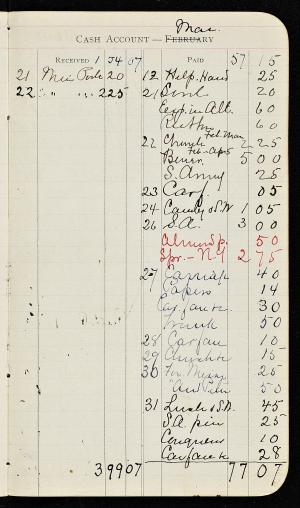 Mar.
CASH ACCOUNT — FEBRUARY
RECEIVED 1 34 07 PAID 57 15
21 20 12 Help. Hand 25
22 " " 2 25 21 20
Exp. in Att. 60
Ruth 60
Feb-Mar
22 Church 2 25
Feb-Apr
Benev. 5 00
S. Army 25
23 Carf. 05
24 Candy & S.N 1 05
26 S.A. 3 00
Almond p. 50
Spr. - N.Y 2 75
27 Carriage 40
Papers 14
30
Trunk 50
28 Carfare 10
29 Church 15
30 25
50
31 Lunch & S.N. 45
S.A. pin 25
10
Carfare 28
3 99 07 77 07